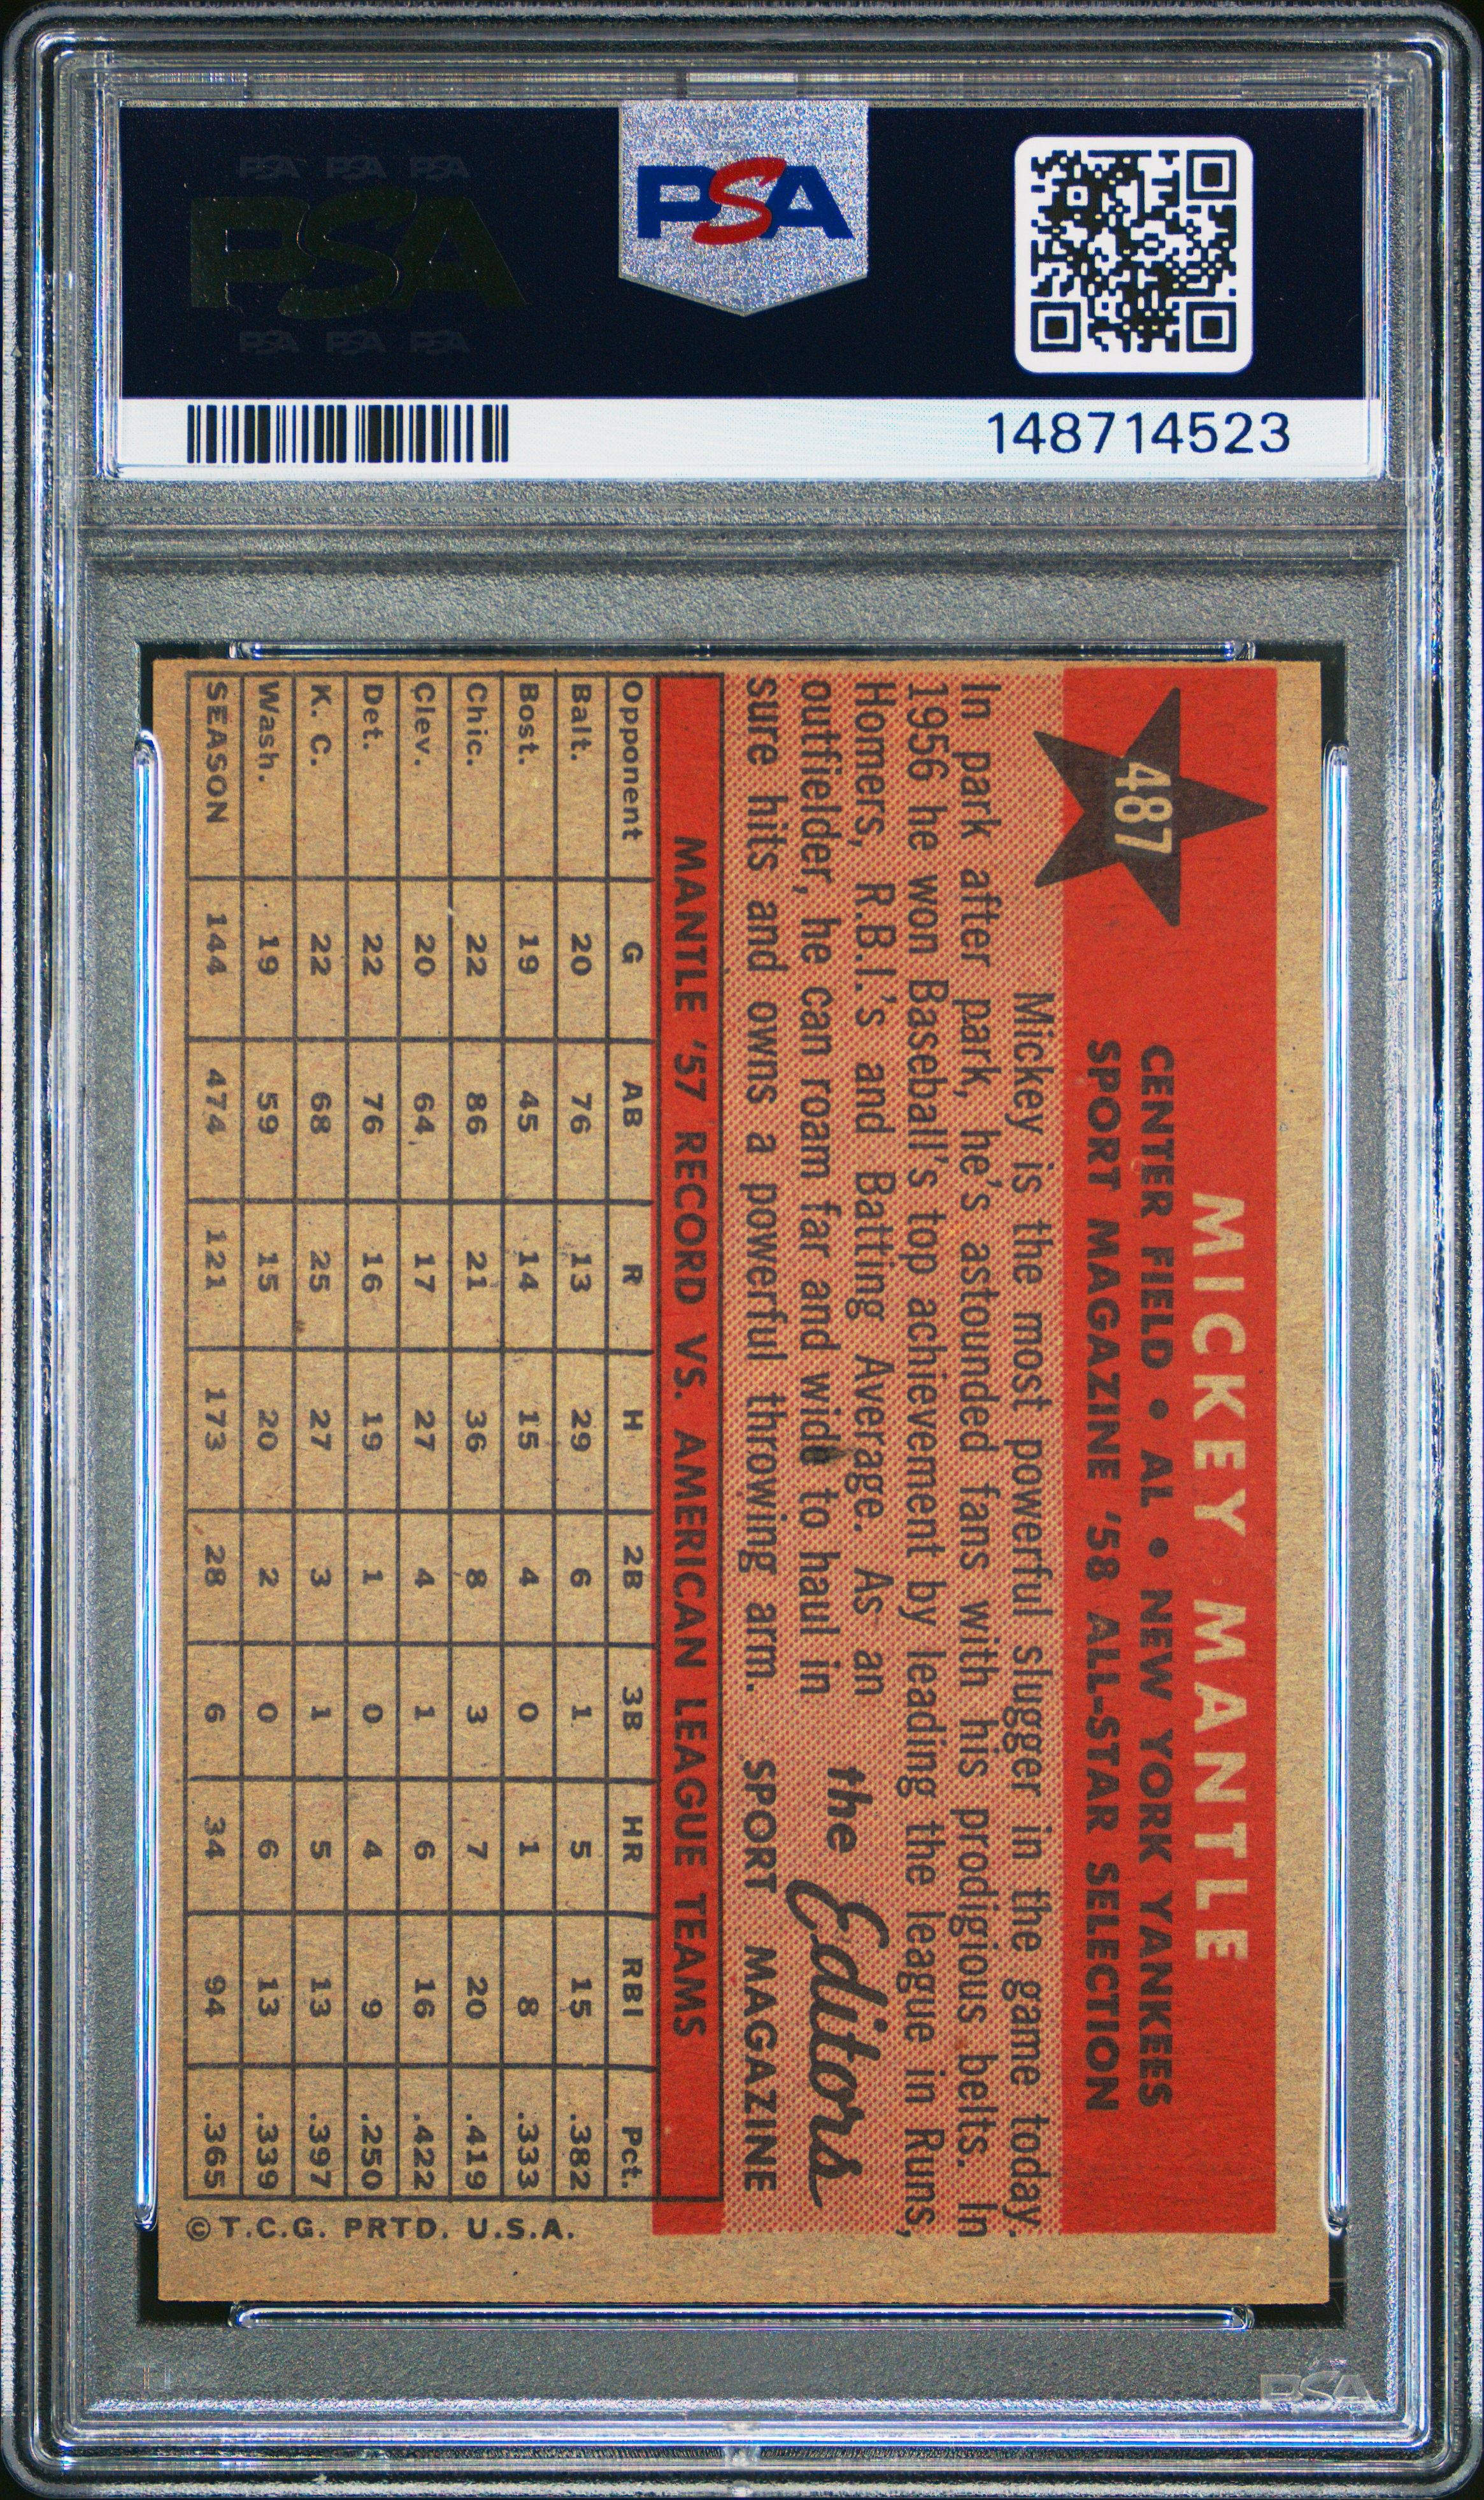 PSA PSA PSA
PSA
PSA PSA PSA
PSA
148714523
487
MICKEY MANTLE
CENTER FIELD • AL • NEW YORK YANKEES
SPORT MAGAZINE '58 ALL-STAR SELECTION
Mickey is the most powerful slugger in the game today.
In park after park, he's astounded fans with his prodigious belts. In
1956 he won Baseball's top achievement by leading the league in Runs,
Homers, R.B.I.'s and Batting Average. As an
outfielder, he can roam far and wide to haul in
sure hits and owns a powerful throwing arm.
the Editors
SPORT MAGAZINE
MANTLE '57 RECORD VS. AMERICAN LEAGUE TEAMS
Opponent G AB R H 2B 3B HR RBI Pct.
Balt. 20 76 13 29 6 1 5 15 .382
Bost. 19 45 14 15 4 0 1 8 .333
Chic. 22 86 21 36 8 3 7 20 .419
Clev. 20 64 17 27 4 1 6 16 .422
Det. 22 76 16 19 1 0 4 9 .250
K. C. 22 68 25 27 3 1 5 13 .397
Wash. 19 59 15 20 2 0 6 13 .339
SEASON 144 474 121 173 28 6 34 94 .365
© T.C.G. PRTD. U.S.A.
PSA